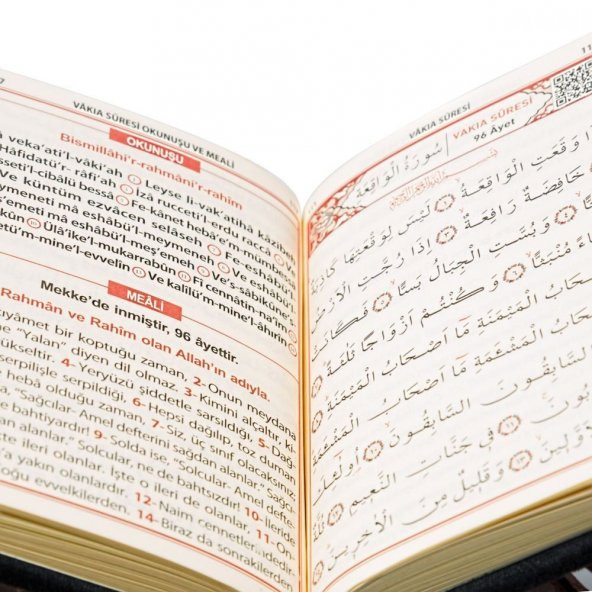 VÂKIA SÛRESİ OKUNUŞU VE MEÂLİ
OKUNUŞU
Bismillâhi'r-rahmâni'r-rahim
veka'ati'l-vâkı'ah ① Leyse li-vak'atihâ kâzibeh
Hâfidatü'r-râfi'ah ③ İzâ rucceti'l-erdu raccâ
sseti'l-cibâlü bessâ ⑤ Fe-kânet hebâ'e'm-mümbe
ve küntüm ezvâcen selâseh ⑦ Fe-eshâbü'l
eymeneti mâ eshâbü'l-meymeneh ⑧ Ve eshâbü'l
'emeti mâ eshâbü'l-meş'emeh ⑨ Ve's-sâbikûne's
kûn ⑩ Ülâ'ike'l-mukarrabûn ⑪ Fî cennâtin-na'îm
etü'm-mine'l-evvelîn ⑬ Ve kalîlü'm-mine'l-âhirîn
MEÂLİ
Mekke'de inmiştir. 96 âyettir.
Rahmân ve Rahîm olan Allah'ın adıyla.
kıyâmet bir koptuğu zaman, 2- Onun meydana
e "Yalan" diyen dil olmaz. 3- Kimini alçaltır, ki-
yükseltir. 4- Yeryüzü şiddetle sarsıldığı, 5- Dağ-
serpilişle serpildiği, 6- Hepsi dağılıp, toz duman
r hebâ olduğu zaman, 7- Siz, üç sınıf olacaksınız
"Sağcılar- Amel defterini sağdan alanlar." sağcı-
bahtiyardır! 9- Solda ise, "Solcular- Amel defte-
soldan alanlar." Solcular, ne de bahtsızdır! 10- İleride
te ileri olanlar. İşte o ileri de olanlar, 11- On-
'a yakın olanlardır. 12- Naim cennetlerindedir.
oğu evvelkilerden. 14- Biraz da sonrakilerden
11
VÂKIA SÛRESİ
VAKIA SÛRESİ
96 Âyet
سُورَةُ الْوَاقِعَةِ
ا وَقَعَتِ الْوَاقِعَةُ ① لَيْسَ لِوَقْعَتِهَا كَاذِبَةٌ
خَافِضَةٌ رَافِعَةٌ ③ إِذَا رُجَّتِ الْاَرْضُ
وَبُسَّتِ الْجِبَالُ بَسًّا ⑤ فَكَانَتْ
اءً مُنْبَثًّا ⑥ وَكُنْتُمْ أَزْوَاجًا ثَلٰثَةً
اَصْحَابُ الْمَيْمَنَةِ مَا اَصْحَابُ الْمَيْمَنَةِ
اَصْحَابُ الْمَشْئَمَةِ مَا اَصْحَابُ الْمَشْئَمَةِ
السَّابِقُونَ السَّابِقُونَ ⑩ اُولٰئِكَ
بُونَ ⑪ فِي جَنَّاتِ النَّعِيمِ ⑫ ثُلَّةٌ
وَّلِينَ ⑬ وَقَلِيلٌ مِنَ الْاٰخِرِينَ